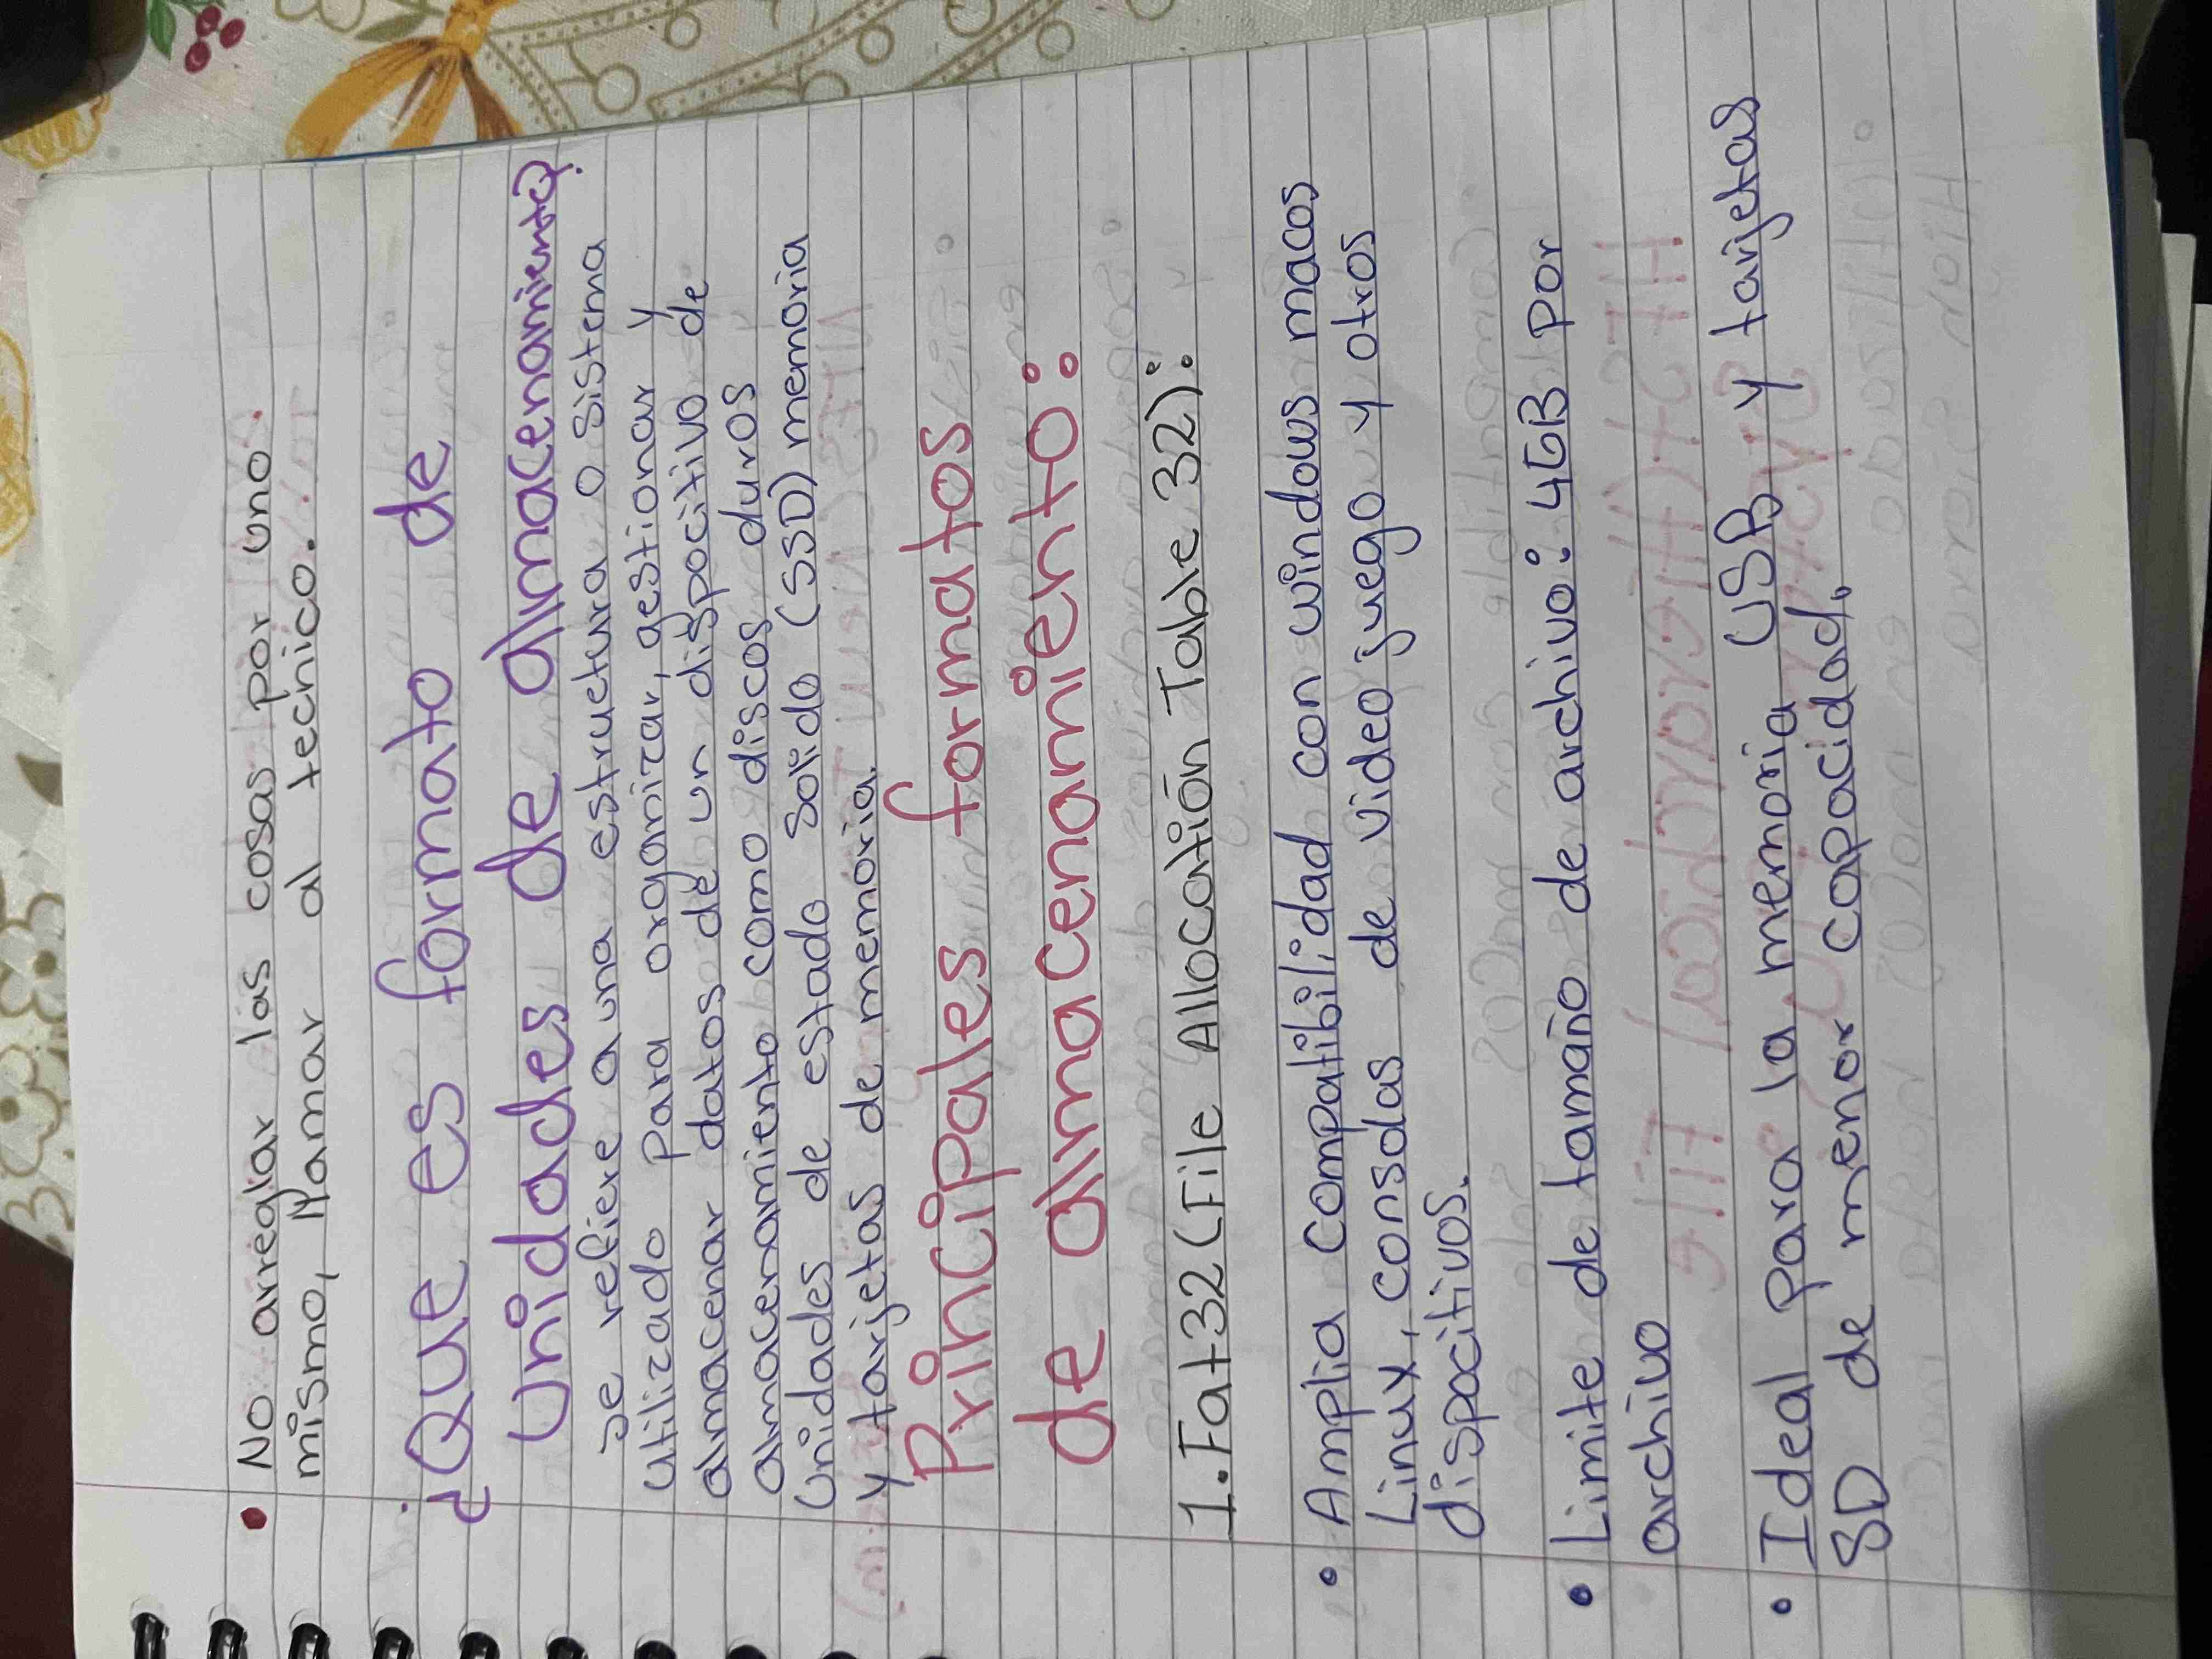 • No arreglar las cosas por uno
mismo, llamar al tecnico.
¿Que es formato de
unidades de almacenamiento?
se refiere a una estructura o sistema
utilizado para organizar, gestionar y
almacenar datos de un dispocitivo de
almacenamiento como discos duros
unidades de estado solido (SSD) memoria
y tarjetas de memoria.
Principales formatos
de almacenamiento:
1. Fat32 (File Allocatión Table 32):
• Amplia compatibilidad con windows macos
Linux, consolas de video juego y otros
dispocitivos.
• Limite de tamaño de archivo: 4GB por
archivo
• Ideal para la memoria USB y tarjetas
SD de menor capacidad.